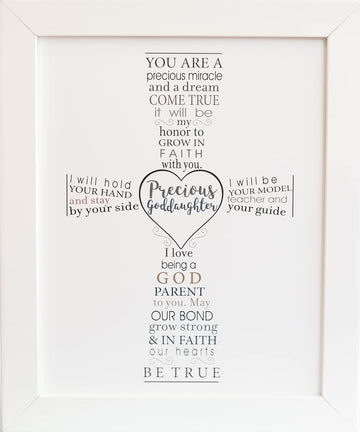 YOU ARE A
precious miracle
and a dream
COME TRUE
it will be
my
honor to
GROW IN
FAITH
with you.
I will hold
YOUR HAND
and stay
by your side
Precious
Goddaughter
I will be
YOUR MODEL
teacher and
your guide
I love
being a
GOD
PARENT
to you. May
OUR BOND
grow strong
& IN FAITH
our hearts
BE TRUE